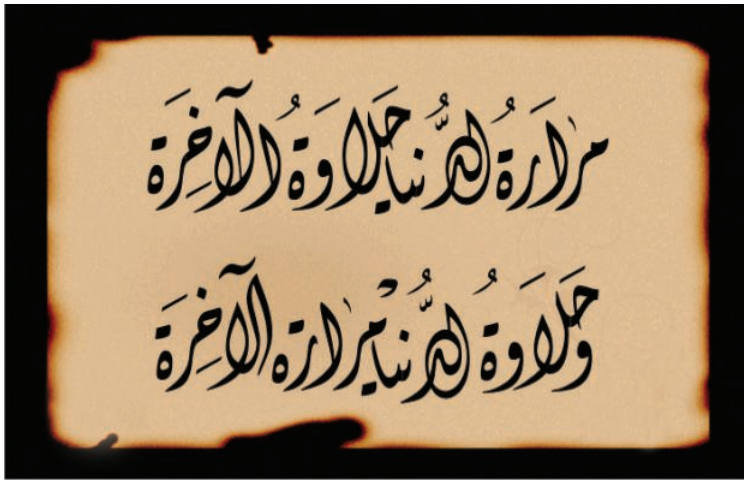 مرارة الدُّنيا حَلاوَةُ الآخِرَة
وحَلاوَةُ الدُّنيا مرارة الآخِرَة